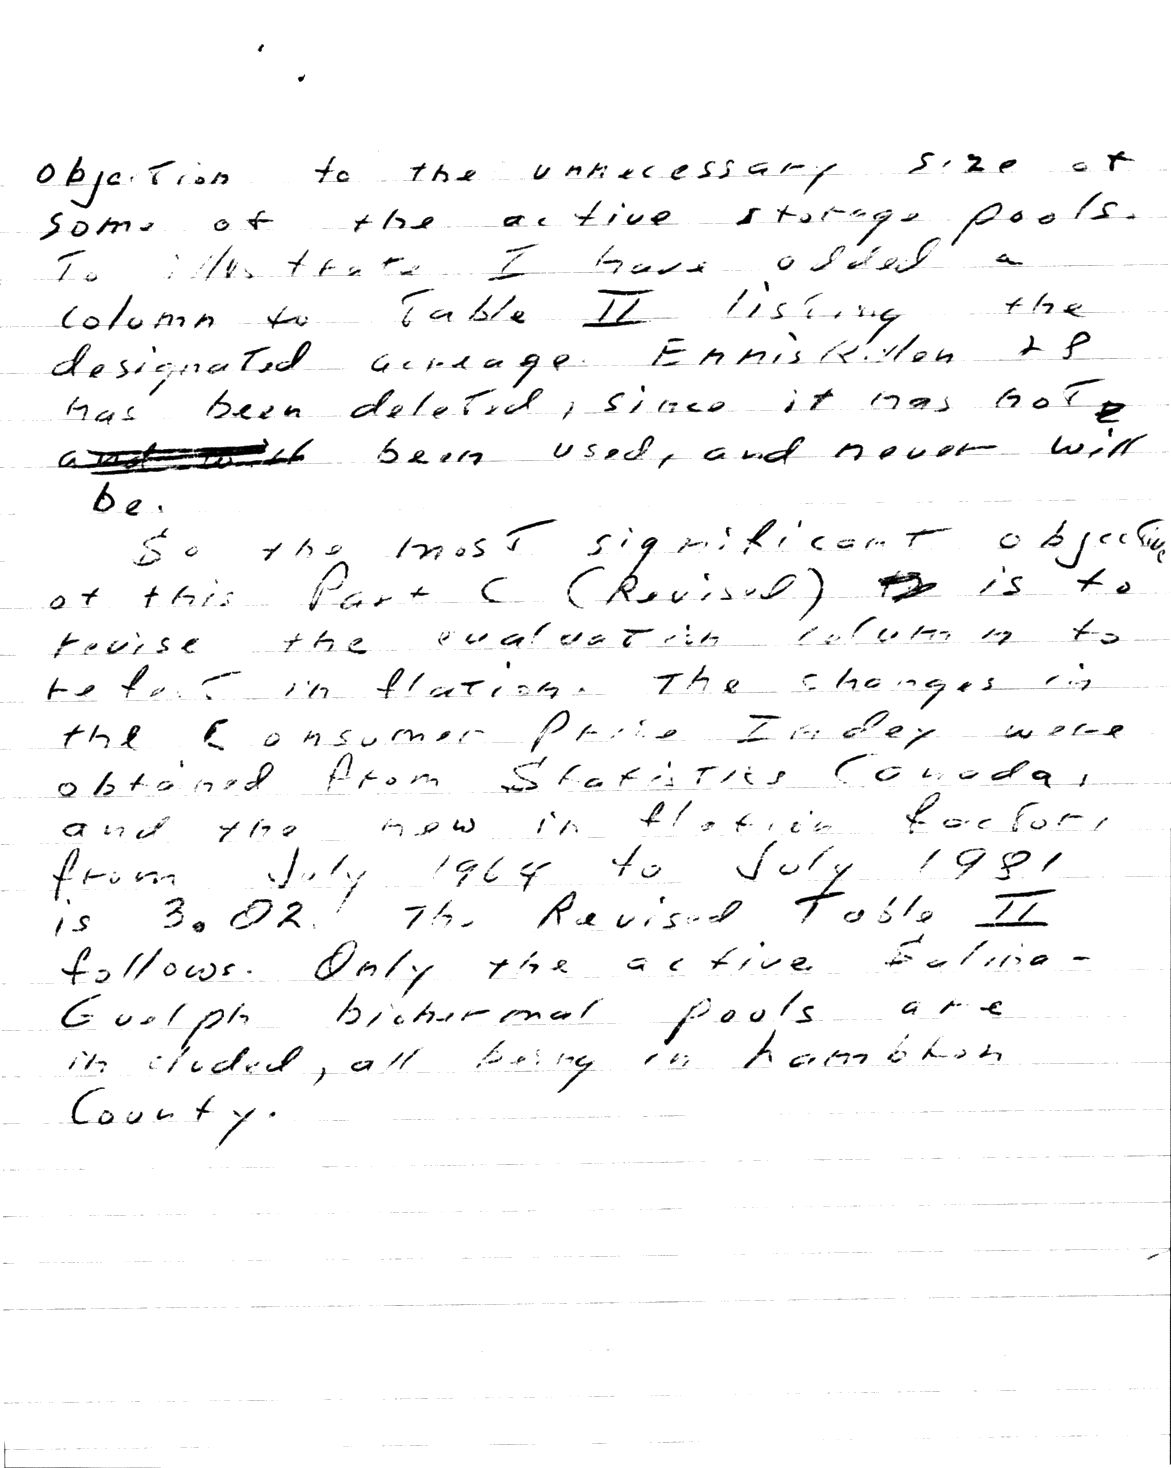 objection to the unnecessary size of
some of the active storage pools.
To illustrate I have added a
column to Table II listing the
designated acreage. Enniskillen 28
has been deleted, since it has not
been used, and never will
be.
So the most significant objective
of this Part C (Revised) is to
revise the evaluation column to
reflect inflation. The changes in
the Consumer Price Index were
obtained from Statistics Canada,
and the new inflation factor,
from July 1964 to July 1981
is 3.02. The Revised Table II
follows. Only the active Salina-
Guelph biohermal pools are
included, all being in Lambton
County.